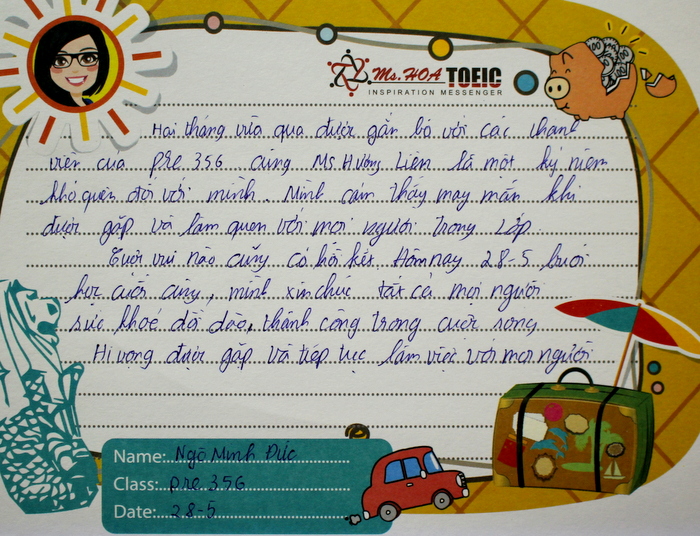 Ms. HOA TOEIC
INSPIRATION MESSENGER
Hai tháng vừa qua được gắn bó với các thành
viên của pre 356 cùng Ms Hương Liên là một kỷ niệm
khó quên đối với mình. Mình cảm thấy may mắn khi
được gặp và làm quen với mọi người trong lớp.
Cuộc vui nào cũng có hồi kết. Hôm nay 28-5 buổi
học cuối cùng, mình xin chúc tất cả mọi người
sức khoẻ dồi dào, thành công trong cuộc sống
Hi vọng được gặp và tiếp tục làm việc với mọi người
Name: Ngô Minh Đức
Class: pre 356
Date: 28-5